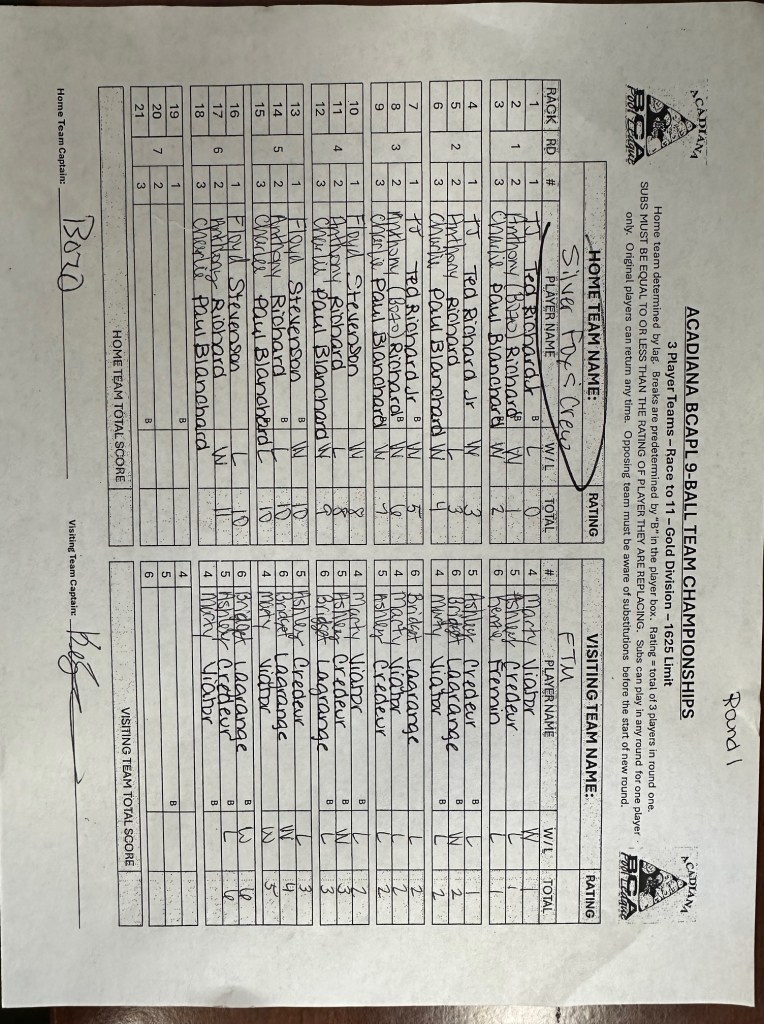 Round 1
ACADIANA
BCA
Pool League
ACADIANA BCAPL 9-BALL TEAM CHAMPIONSHIPS
3 Player Teams – Race to 11 – Gold Division – 1625 Limit
ACADIANA
BCA
Pool League
Home team determined by lag. Breaks are predetermined by "B" in the player box. Rating = total of 3 players in round one.
SUBS MUST BE EQUAL TO OR LESS THAN THE RATING OF PLAYER THEY ARE REPLACING. Subs can play in any round for one player
only. Original players can return any time. Opposing team must be aware of substitutions before the start of new round.
HOME TEAM NAME: RATING VISITING TEAM NAME: RATING
Silver Fox's Crew FTM
RACK RD # PLAYER NAME W/L TOTAL # PLAYER NAME W/L TOTAL
1 1 TJ Ted Richard Jr B L 0 4 Marty Viator W 1
2 1 2 Anthony (Bozo) Richard B W 1 5 Ashley Credeur L 1
3 3 Charlie Paul Blanchard W 2 6 Fremin L 1
4 1 TJ Ted Richard Jr W 3 5 Ashley Credeur B L 1
5 2 2 Anthony Richard L 3 6 Bridget Lagrange B W 2
6 3 Charlie Paul Blanchard W 4 4 Marty Viator B L 2
7 1 TJ Ted Richard Jr B W 5 6 Bridget Lagrange L 2
8 3 2 Anthony (Bozo) Richard B W 6 4 Marty Viator L 2
9 3 Charlie Paul Blanchard B W 7 5 Ashley Credeur L 2
10 1 Floyd Stevenson W 8 4 Marty Viator B L 2
11 4 2 Anthony Richard L 8 5 Ashley Credeur B W 3
12 3 Charlie Paul Blanchard W 9 6 Bridget Lagrange B L 3
13 1 Floyd Stevenson B W 10 5 Ashley Credeur L 3
14 5 2 Anthony Richard B L 10 6 Bridget Lagrange W 4
15 3 Charlie Paul Blanchard L 10 4 Marty Viator W 5
16 1 Floyd Stevenson L 10 6 Bridget Lagrange B W 6
17 6 2 Anthony Richard W 11 5 Ashley Credeur B L 6
18 3 Charlie Paul Blanchard 4 Marty Viator B
19 1 B 4 B
20 7 2 5
21 3 B 6 B
HOME TEAM TOTAL SCORE VISITING TEAM TOTAL SCORE
Home Team Captain: Bozo Visiting Team Captain: